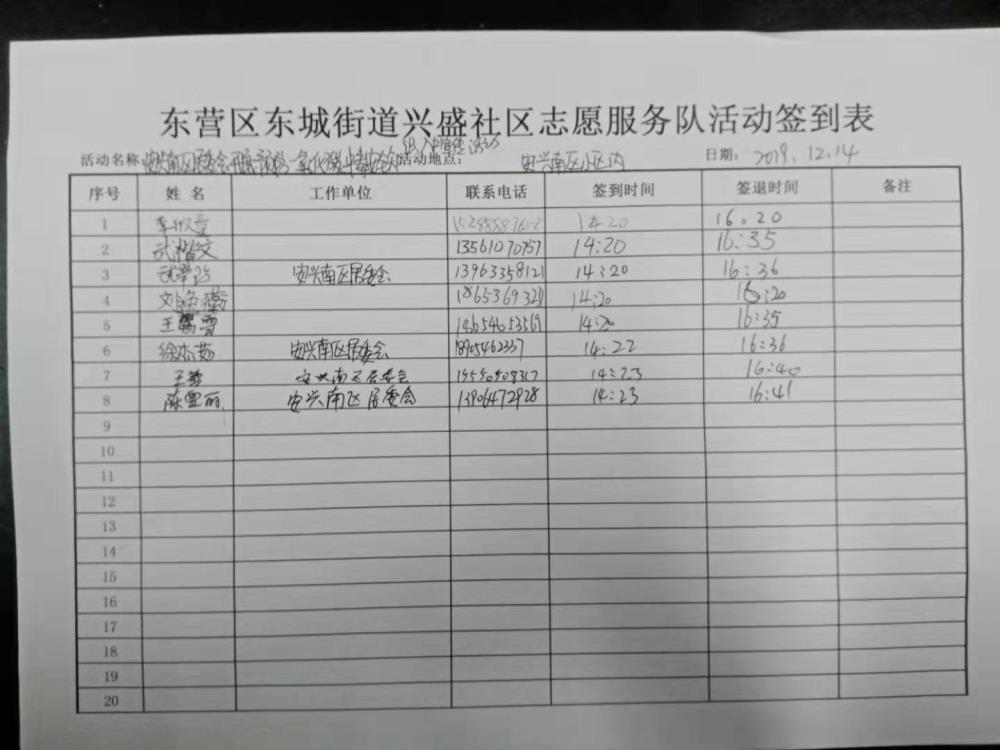 东营区东城街道兴盛社区志愿服务队活动签到表
活动名称 安兴南区居委会开展预防一氧化碳中毒 入户宣传活动 活动地点: 安兴南区小区内 日期: 2019.12.14
序号 姓名 工作单位 联系电话 签到时间 签退时间 备注
1 李 14:20 16:20
2 武 文 13561070757 14:20 16:35
3 武 安兴南区居委会 13963358121 14:20 16:36
4 刘 14:20 16:20
5 王 雪 14:20 16:35
6 徐杰茹 安兴南区居委会 18905462337 14:22 16:36
7 王 安兴南区居委会 14:23 16:40
8 陈雪丽 安兴南区居委会 13906472928 14:23 16:41
9
10
11
12
13
14
15
16
17
18
19
20